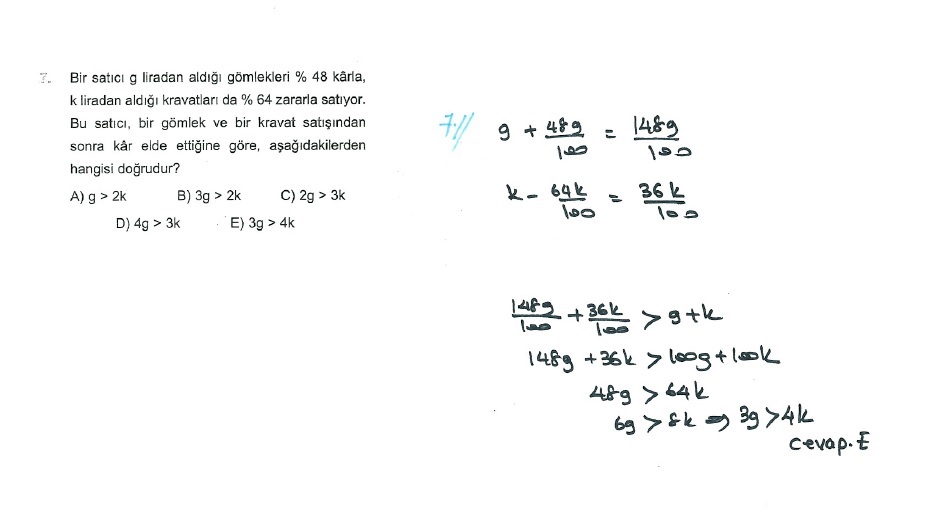 7. Bir satıcı g liradan aldığı gömlekleri % 48 kârla,
k liradan aldığı kravatları da % 64 zararla satıyor.
Bu satıcı, bir gömlek ve bir kravat satışından
sonra kâr elde ettiğine göre, aşağıdakilerden
hangisi doğrudur?
A) g > 2k B) 3g > 2k C) 2g > 3k
D) 4g > 3k E) 3g > 4k
7// g + 48g/100 = 148g/100
k - 64k/100 = 36k/100
148g/100 + 36k/100 > g+k
148g + 36k > 100g + 100k
48g > 64k
6g > 8k ⇒ 3g > 4k
Cevap.E